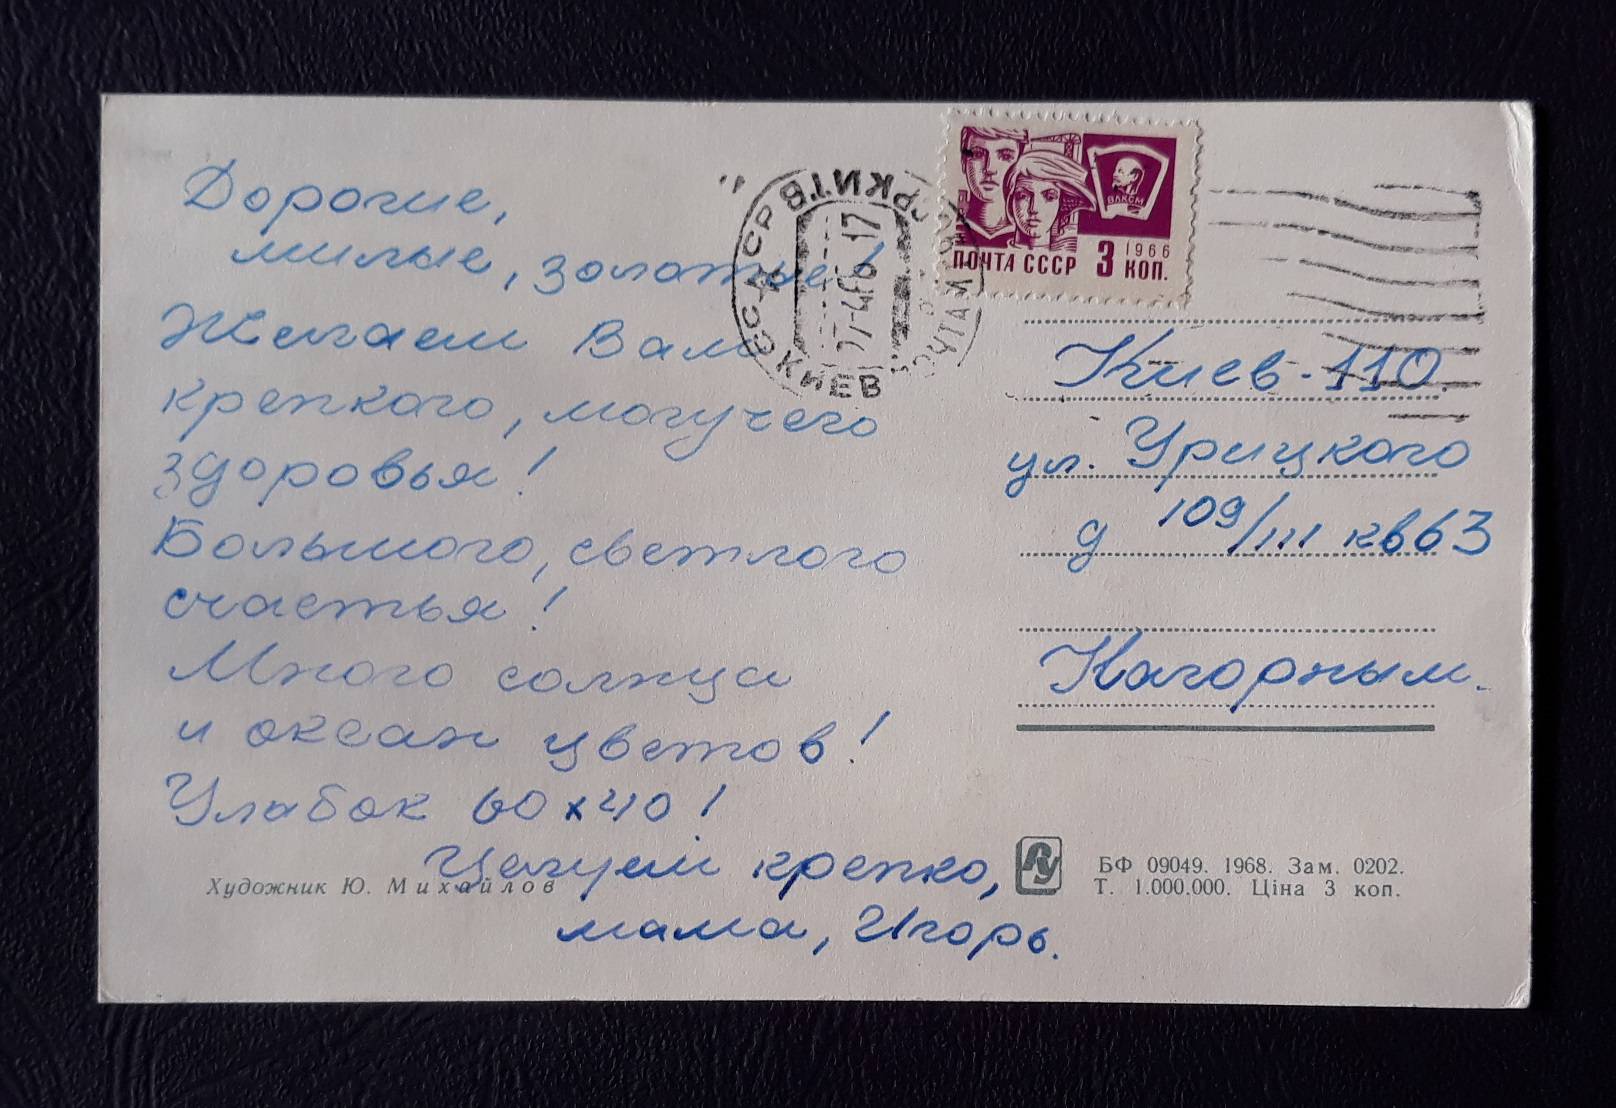 Дорогие,
милые, золотые!
Желаем Вам
крепкого, могучего
здоровья!
Большого, светлого
счастья!
Много солнца
и океан цветов!
Улабок 60х40!
Целуем крепко,
мама, Игорь.
Художник Ю. Михайлов
КИЕВ
17
ВЛКСМ
1966
ПОЧТА СССР 3 КОП.
Киев-110
ул. Урицкого
д 109/III кв63
Нагорным.
БФ 09049. 1968. Зам. 0202.
Т. 1.000.000. Ціна 3 коп.